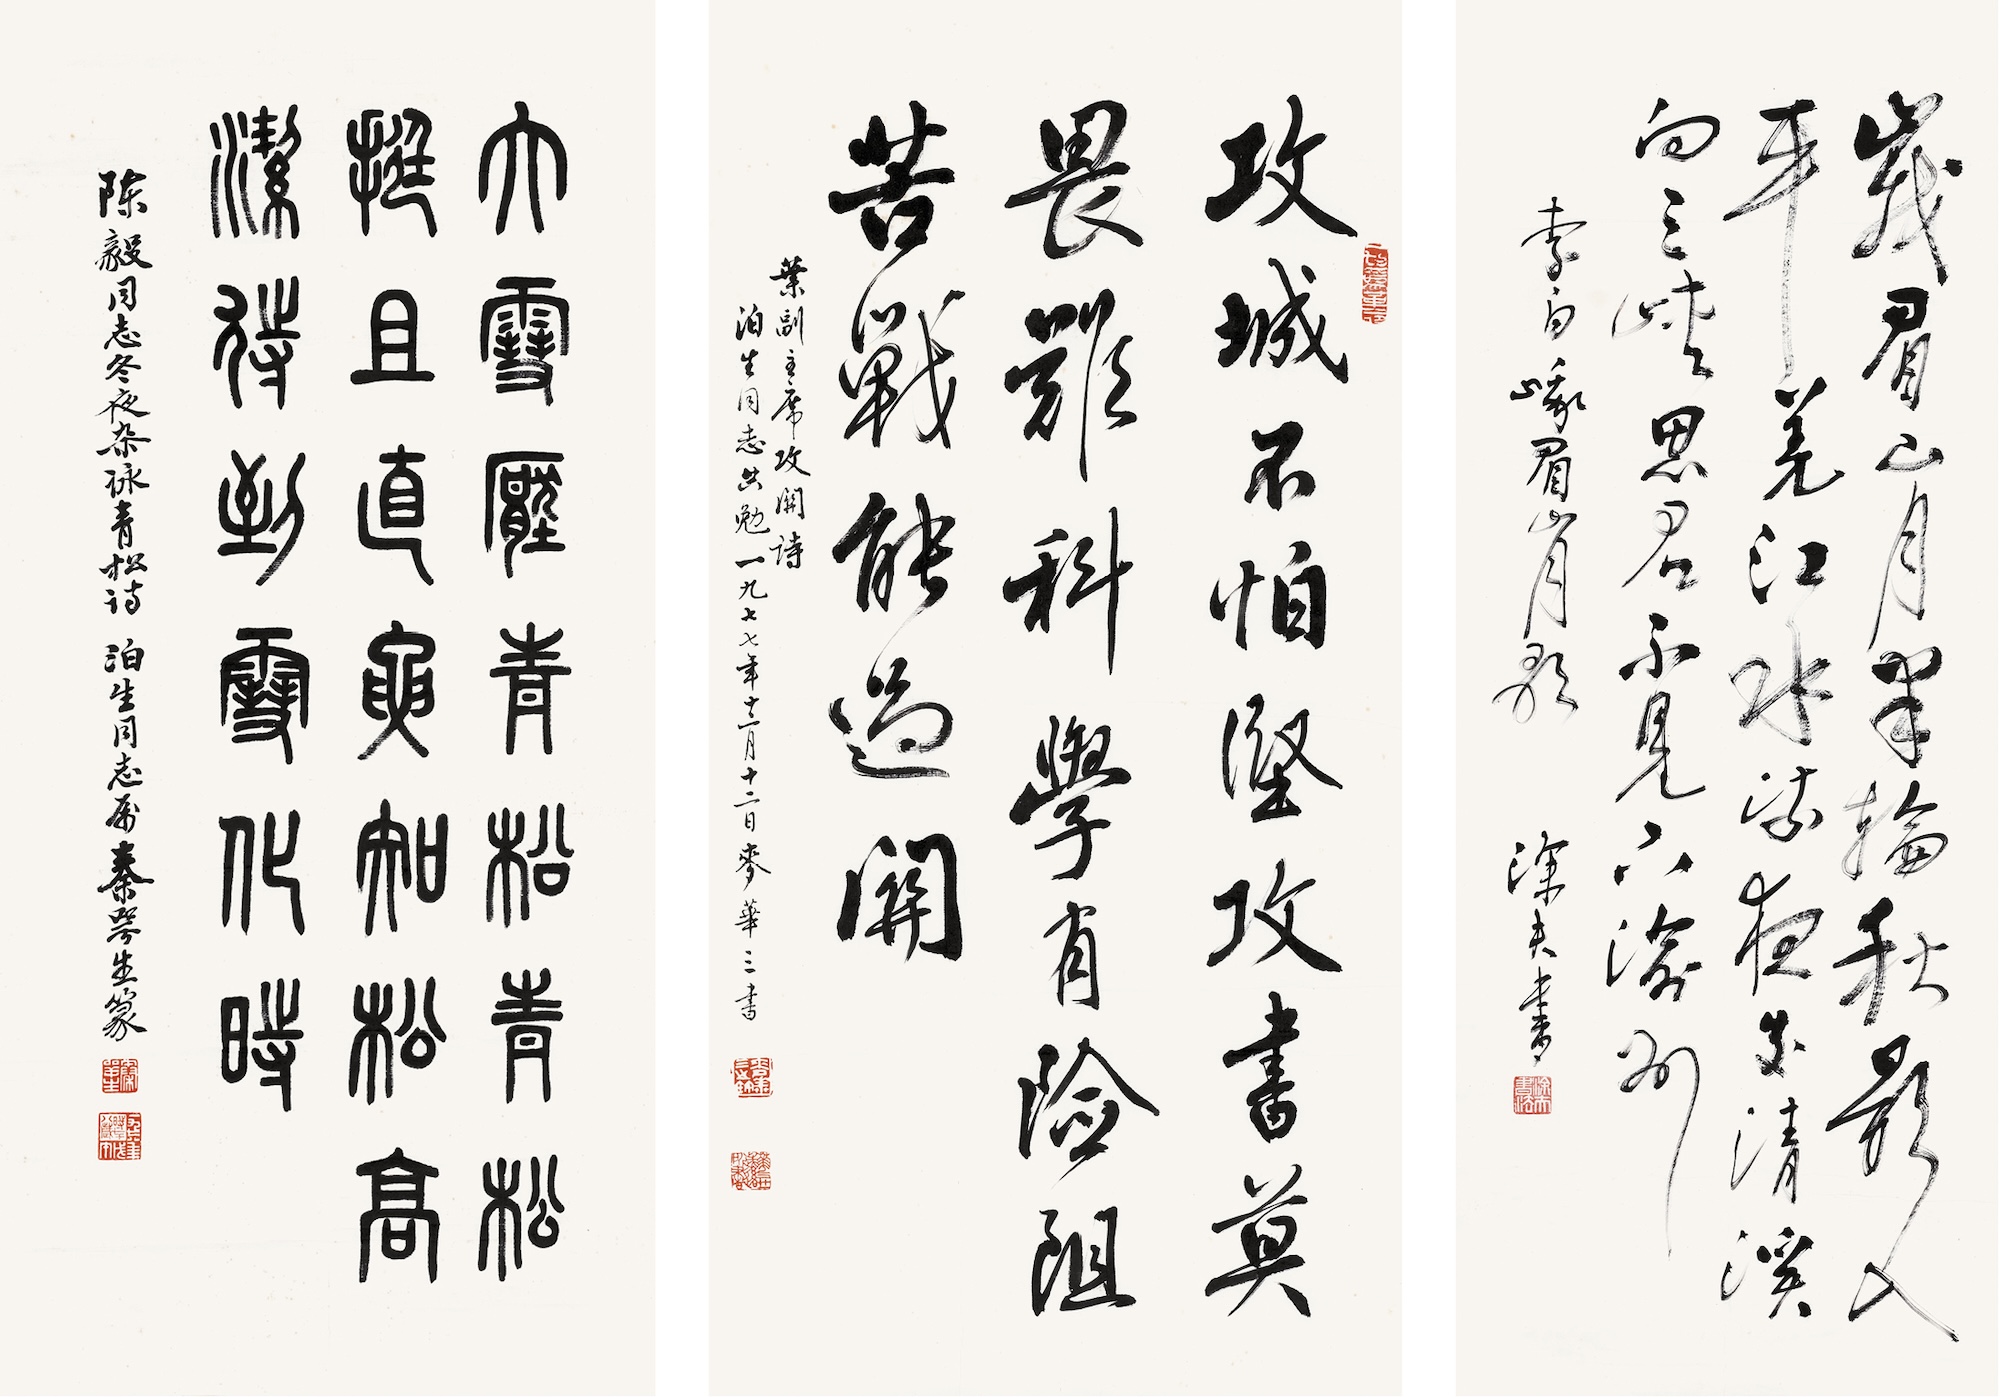 峩眉山月半輪秋影入
平羌江水流夜發清溪
向三峽思君不見下渝州
李白峨眉山月歌 涂夫書
攻城不怕堅攻書莫
畏難科學有險阻
苦戰能過關
葉副主席攻關詩
泊生同志共勉一九七七年十二月十二日麥華三書
大雪壓青松青松
挺且直要知松高
潔待到雪化時
陈毅同志冬夜杂咏青松诗 泊生同志属秦咢生篆